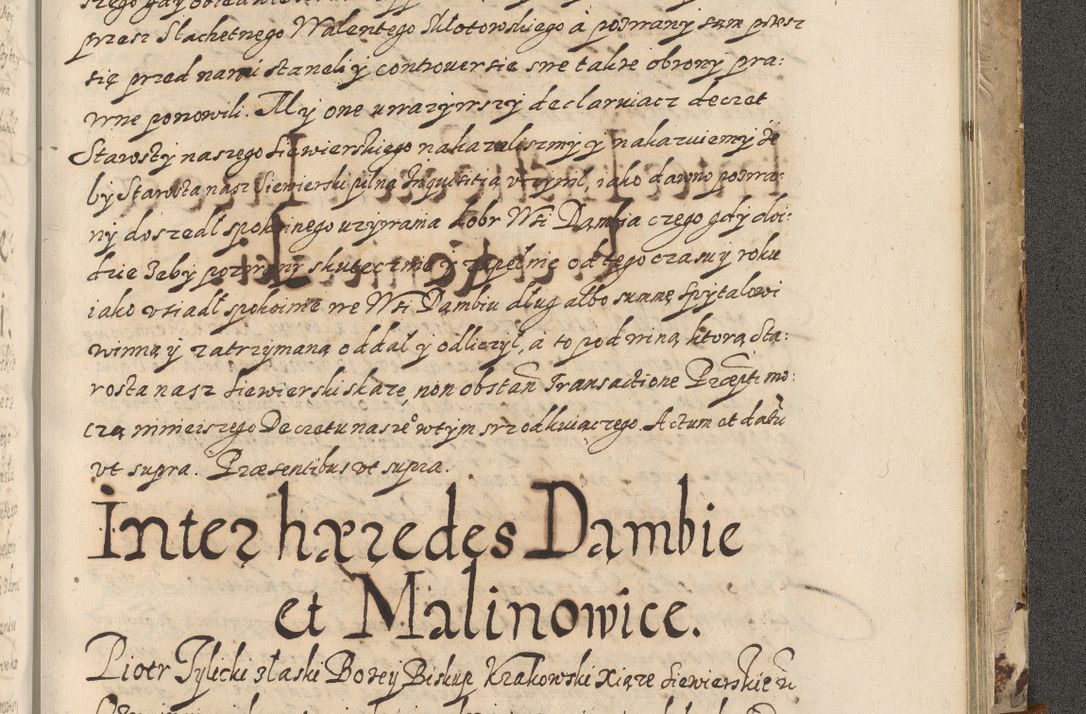 przez Slachetnego Walentego Skłotowskiego a pozwany sam przez
się przed nami stanęli y controuersie swe także obrony pra:
wne ponowili. My one uwazywszy declaruiącz decret
Starosty naszego Siewierskiego nakazalismy y nakazuiemy że
by Starosta nasz Siewierski pilną Inquisitią vczynił, iako dawno pozwa:
ny doszedł spokoinego uzywania dobr Wsi Dambia czego gdy doi:
dzie żeby pozwany skutecznie y zupełnie od tego czasu y roku
iako vsiadł spokoinie we Wsi Dąmbiu dług albo summę spytalowi
winną y zatrzymaną oddał y odliczył, a to pod winą ktorą sta:
rosta nasz Siewierski skaże, non obstan Transactione Præcepti mo:
czą ninieiszego Decretu nasze° w tym srzodkuiączego. Actum et datū
vt supra. Præsentibus vt supra.
Inter hæredes Dambie
et Malinowice.
Piotr Tylicki z łaski Bożey Biskup Krakowski Xiąże Siewierskie